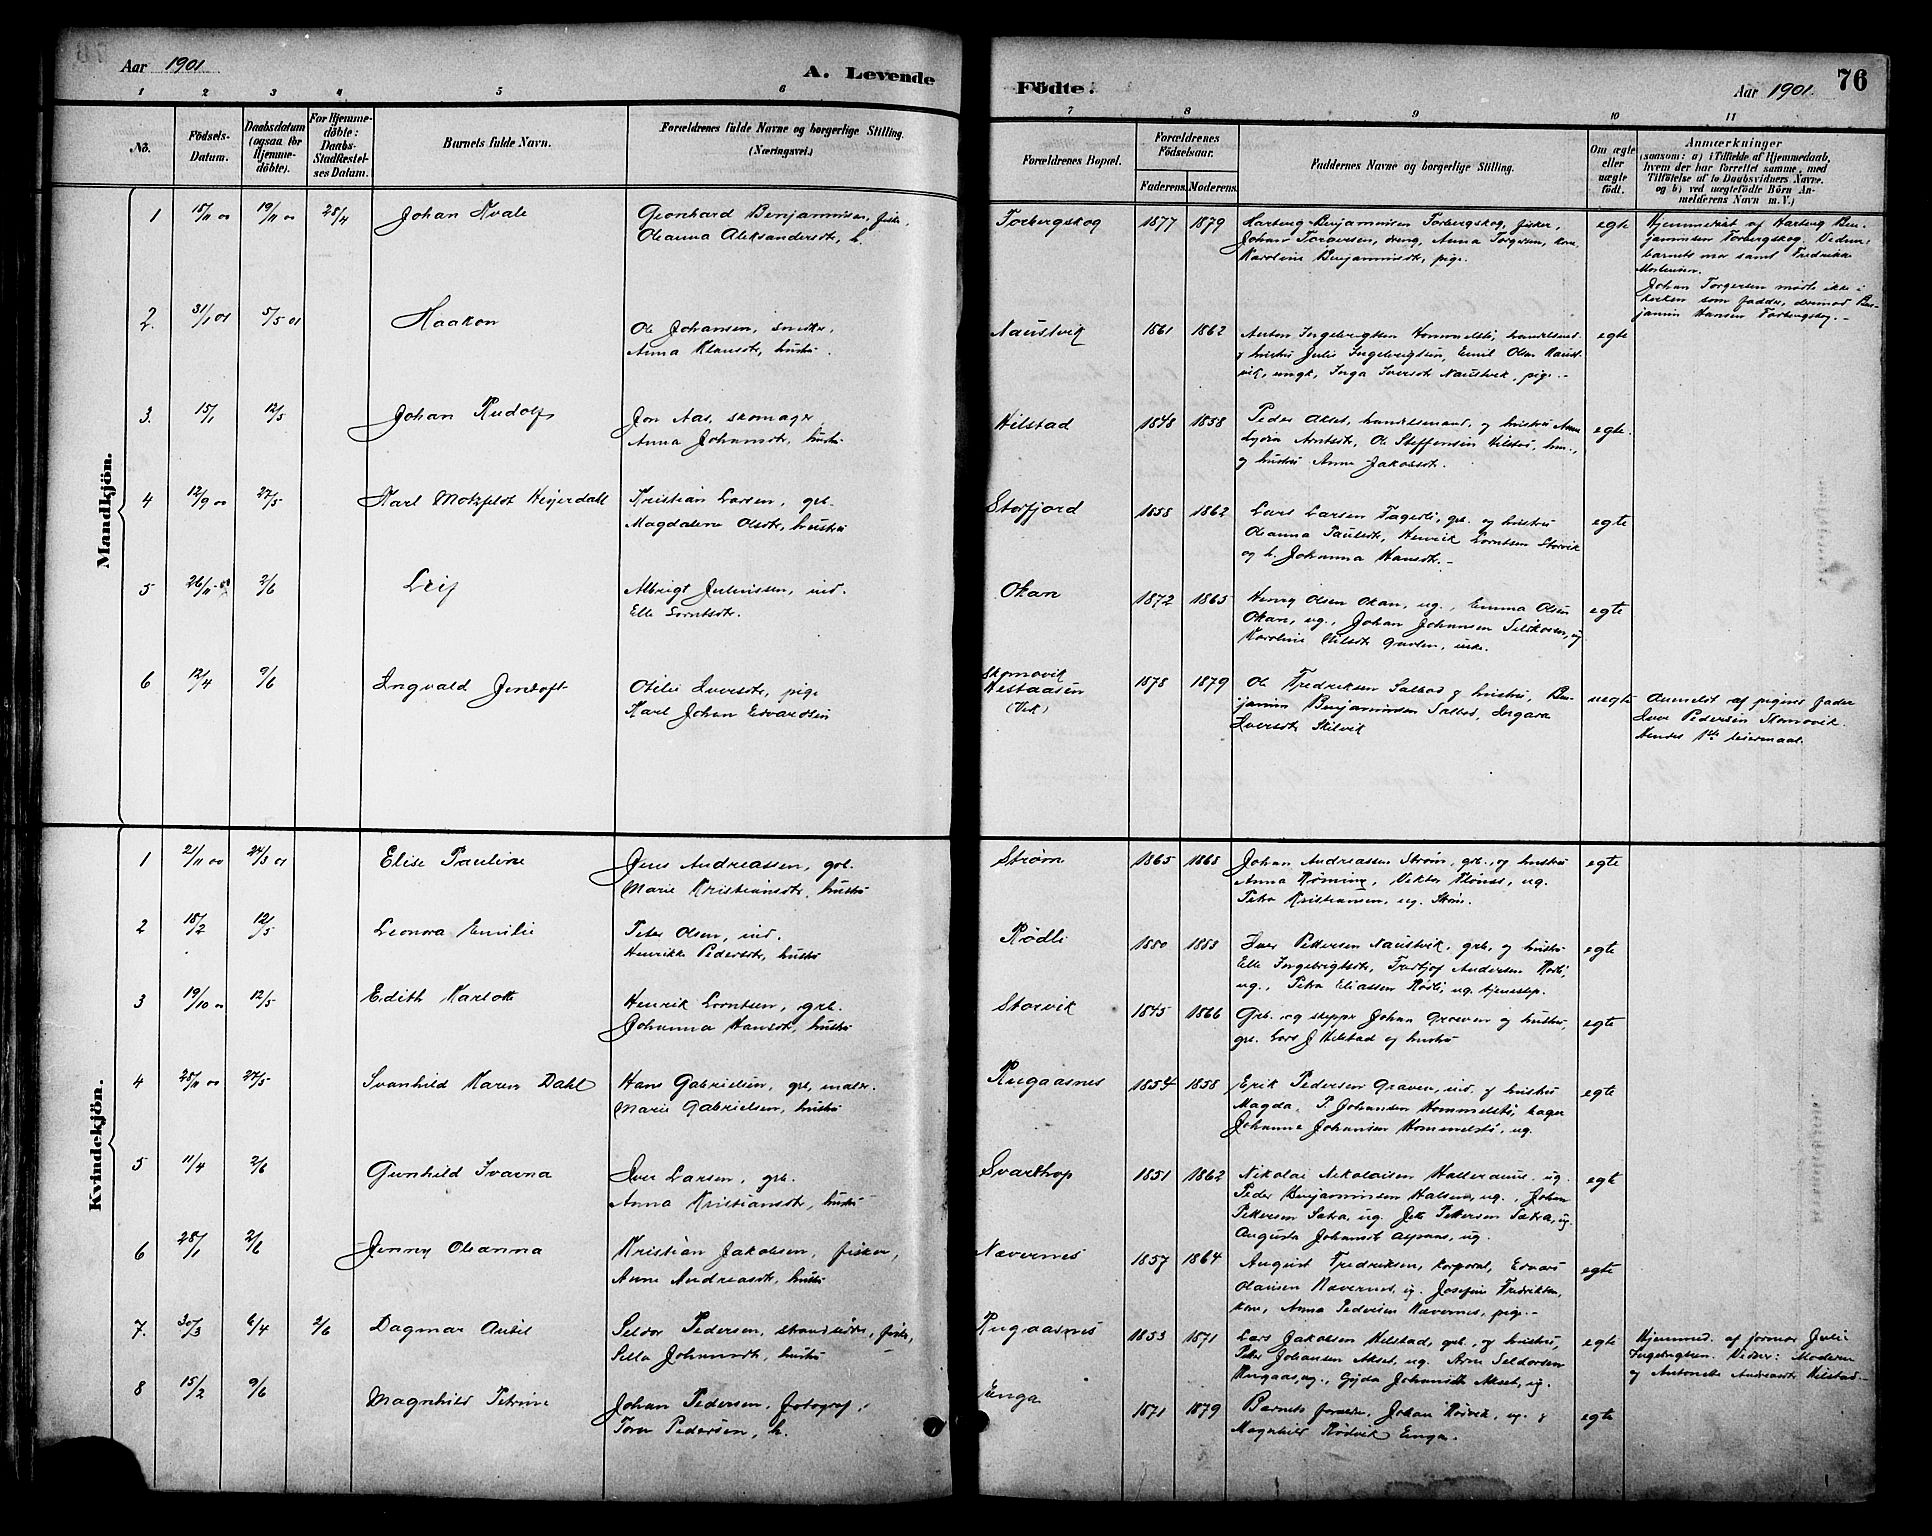 Aar 1901
A. Levende
Födte.
Aar 1901
76
1 2 3 4 5 6 7 8 9 10 11
No.
Födsels-
Datum.
Daabsdatum
(ogsaa for
Hjemme-
döbte).
For Hjemme-
döbte:
Daabs-
Stadfæstel-
ses Datum.
Barnets fulde Navn.
Forældrenes fulde Navne og borgerlige Stilling.
(Næringsvei.)
Forældrenes Bopæl.
Forældrenes
Födselsaar.
Faderens. Moderens.
Faddernes Navne og borgerlige Stilling.
Om ægte
eller
uægte
födt.
Anmærkninger
(saasom: a) i Tilfælde af Hjemmedaab,
hvem der har forrettet samme, med
Tilföielse af to Daabsvidners Navne,
og b) ved uægtefödte Börn An-
melderens Navn m. V.)
Mandkjön.
1 18/11 00 19/11 00 28/4 Johan Kvale
Geonhard Benjaminsen, fisk.,
Oleanna Aleksandersdt, h.
Torbergskog 1877 1879
Hartvig Benjaminsen Torbergskog, fisker,
Johan Torgersen, dreng, Anna Torgersen, kone,
Karoline Benjaminsdt, pige.
egte
Hjemmedøbt af Hartvig Ben-
jaminsen Torbergskog. Vidne:
barnets mor samt Fredrikke
Mortensen.
Johan Torgersen mødte ikke i
kirken som fadder, derimod Ben-
jamin Hansen Torbergskog.
2. 31/1 01 5/5 01 Haakon
Ole Johansen, snedker,
Anna Klausdt, hustru.
Naustvik 1861 1862
Anton Ingebrigtsen Hommelstø, handelsmd
og hustru Julie Ingebrigtsen, Emil Olsen Naust-
vik, ungk, Inga Iversdt Naustvik, pige.
egte
3. 15/1 12/5 Johan Rudolf
Jon Aas, skomager
Anna Johansdt, hustru
Hilstad 1848 1858
Peder Akset, handelsmand, og hustru Anne
Lydia Arntsdt, Ole Steffensen Hilstad,
og hustru Anne Jakobsdt.
egte.
4 12/9 00 27/5 Karl Motzfeldt Heyerdahl
Kristian Larsen, grb.
Magdalena Olsdt, hustru
Storfjord 1858 1862
Lars Larsen Fagerli, grb. og hustru
Oleanna Paulsdt, Henrik Lorntsen Storvik
og h. Johanna Hansdt.
egte
5 26/11 2/6 Leif
Albrigt Juliussen, ind.
Elle Lorntsdt.
Okan 1872 1865
Henry Olsen Okan, ug., Emma Olsen
Okan, ug., Johan Johansen Selikosen, ug
Karoline Nilsdt
egte
6 12/4 9/6 Ingvald Jentoft
Otilie Iversdt, pige
Karl Johan Edvardsen
Skomovik
Hestaasen
(Vik)
1878 1879
Ole Fredriksen Salbod og hustru, Ben-
jamin Benjaminsen Salbod, Ingara
Iversdt Skilvik
uegte
Anmeldt af pigens fader
Iver Pedersen Skomovik.
Hendes 1ste leiermaal.
Kvindekjön.
1 21/11 00 24/3 01 Elise Pauline
Jens Andreassen, grb.
Marie Kristiansdt, hustru
Strøm 1865 1865
Johan Andreassen Strøm, grb., og hustru
Anna, Vektor, ug.
Petra Kristiansen, ug. Strøm.
egte
2 18/2 12/5 Leonora Emilie
Peter Olsen, ind.
Henrikke Pedersdt, hustru
Rødli 1880 1883
Iver Pettersen Naustvik, grb, og hustru
Elle Ingebrigtsdt, Fredtjof Andersen Rødli,
ug., Petra Eliassen Rødli, ug. tjenestep.
egte
3 19/10 00 12/5 Edith Karlotte
Henrik Lorntsen, grb.
Johanna Hansdt, hustru
Storvik 1845 1866
Grb. og skipper Johan Graven og hustru,
grb. Lars J Hilstad og hustru
egte
4 28/11 00 27/5 Svanhild Karen Dahl
Hans Gabrielsen, grb, maler.
Marie Gabrielsen, hustru
Rugaasnes 1854 1858
Erik Pedersen Graven, ind. og hustru
Magda, P. Johansen Hommelstø, bager
Johanne Johansen Hommelstø, ug.
egte
5 11/4 2/6 Gunhild Svarna
Iver Larsen, grb.
Anna Kristiansdt, hustru
Svarthop 1851 1862
Nikolai Nikolaisen Halleraune, ug.
Peder Benjaminsen Halsene, ug., Johan
Pettersen Sætra, ug. Jette Pettersen Sætra, ug.
Augusta Johansdt, ug.
egte
6 28/1 2/6 Jenny Oleanna
Kristian Jakobsen, fisker,
Anne Andreasdt, hustru
Nævernes 1857 1864
August Fredriksen, korporal, Edvard
Olausen Nævernes, ug. Josefine Fredriksen,
kone, Anna Pedersen Nævernes, pige.
egte
7. 30/3 6/4 2/6 Dagmar Aubil
Seldor Pedersen, strandsidder, fisker,
Silla Johansdt, hustru
Rugaasnes 1853 1871
Lars Jakobsen Hilstad, grb, og hustru,
Peter Johansen Akset, ug. Arne Seldorsen
Rugaas, ug., Gyda Johansdt Akset, ug.
egte
Hjemmed. af jormor Julie
Ingebrigtsen. Vidner: Moderen
og Antonette Andreasdt Hilstad.
8 15/2 9/6 Magnhild Petrine
Johan Pedersen, fotograf,
Tora Pedersen, h.
Enga 1871 1879
Barnets forældre, Johan Rødvik, ug. og
Magnhild Rødvik Enga.
egte